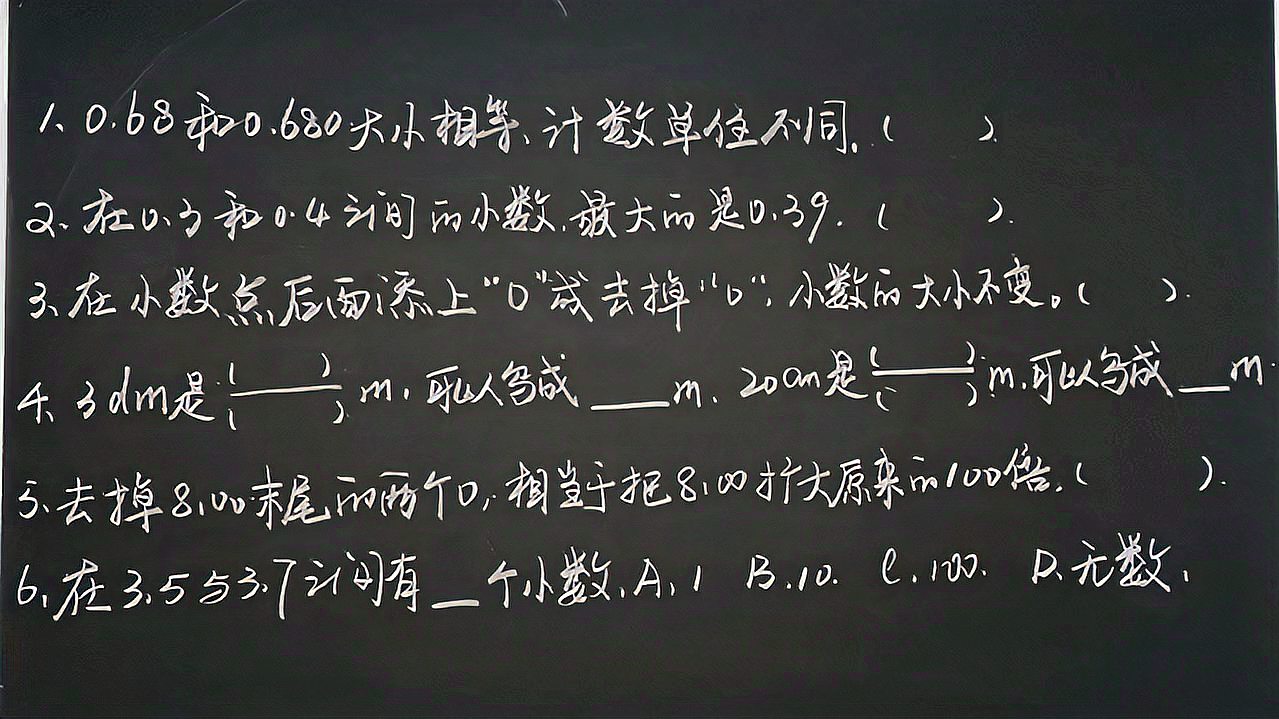 1、0.68和0.680大小相等、计数单位不同.( ).
2、在0.3和0.4之间的小数.最大的是0.39.( ).
3、在小数点后面添上"0"或去掉"0",小数的大小不变。( ).
4、3dm是( )/( )m,可以写成___m、20cm是( )/( )m,可以写成__m.
5、去掉8.00末尾的两个0,相当于把8.00扩大原来的100倍.( ).
6、在3.5与3.7之间有__个小数、A、1 B.10. C.100. D、无数、